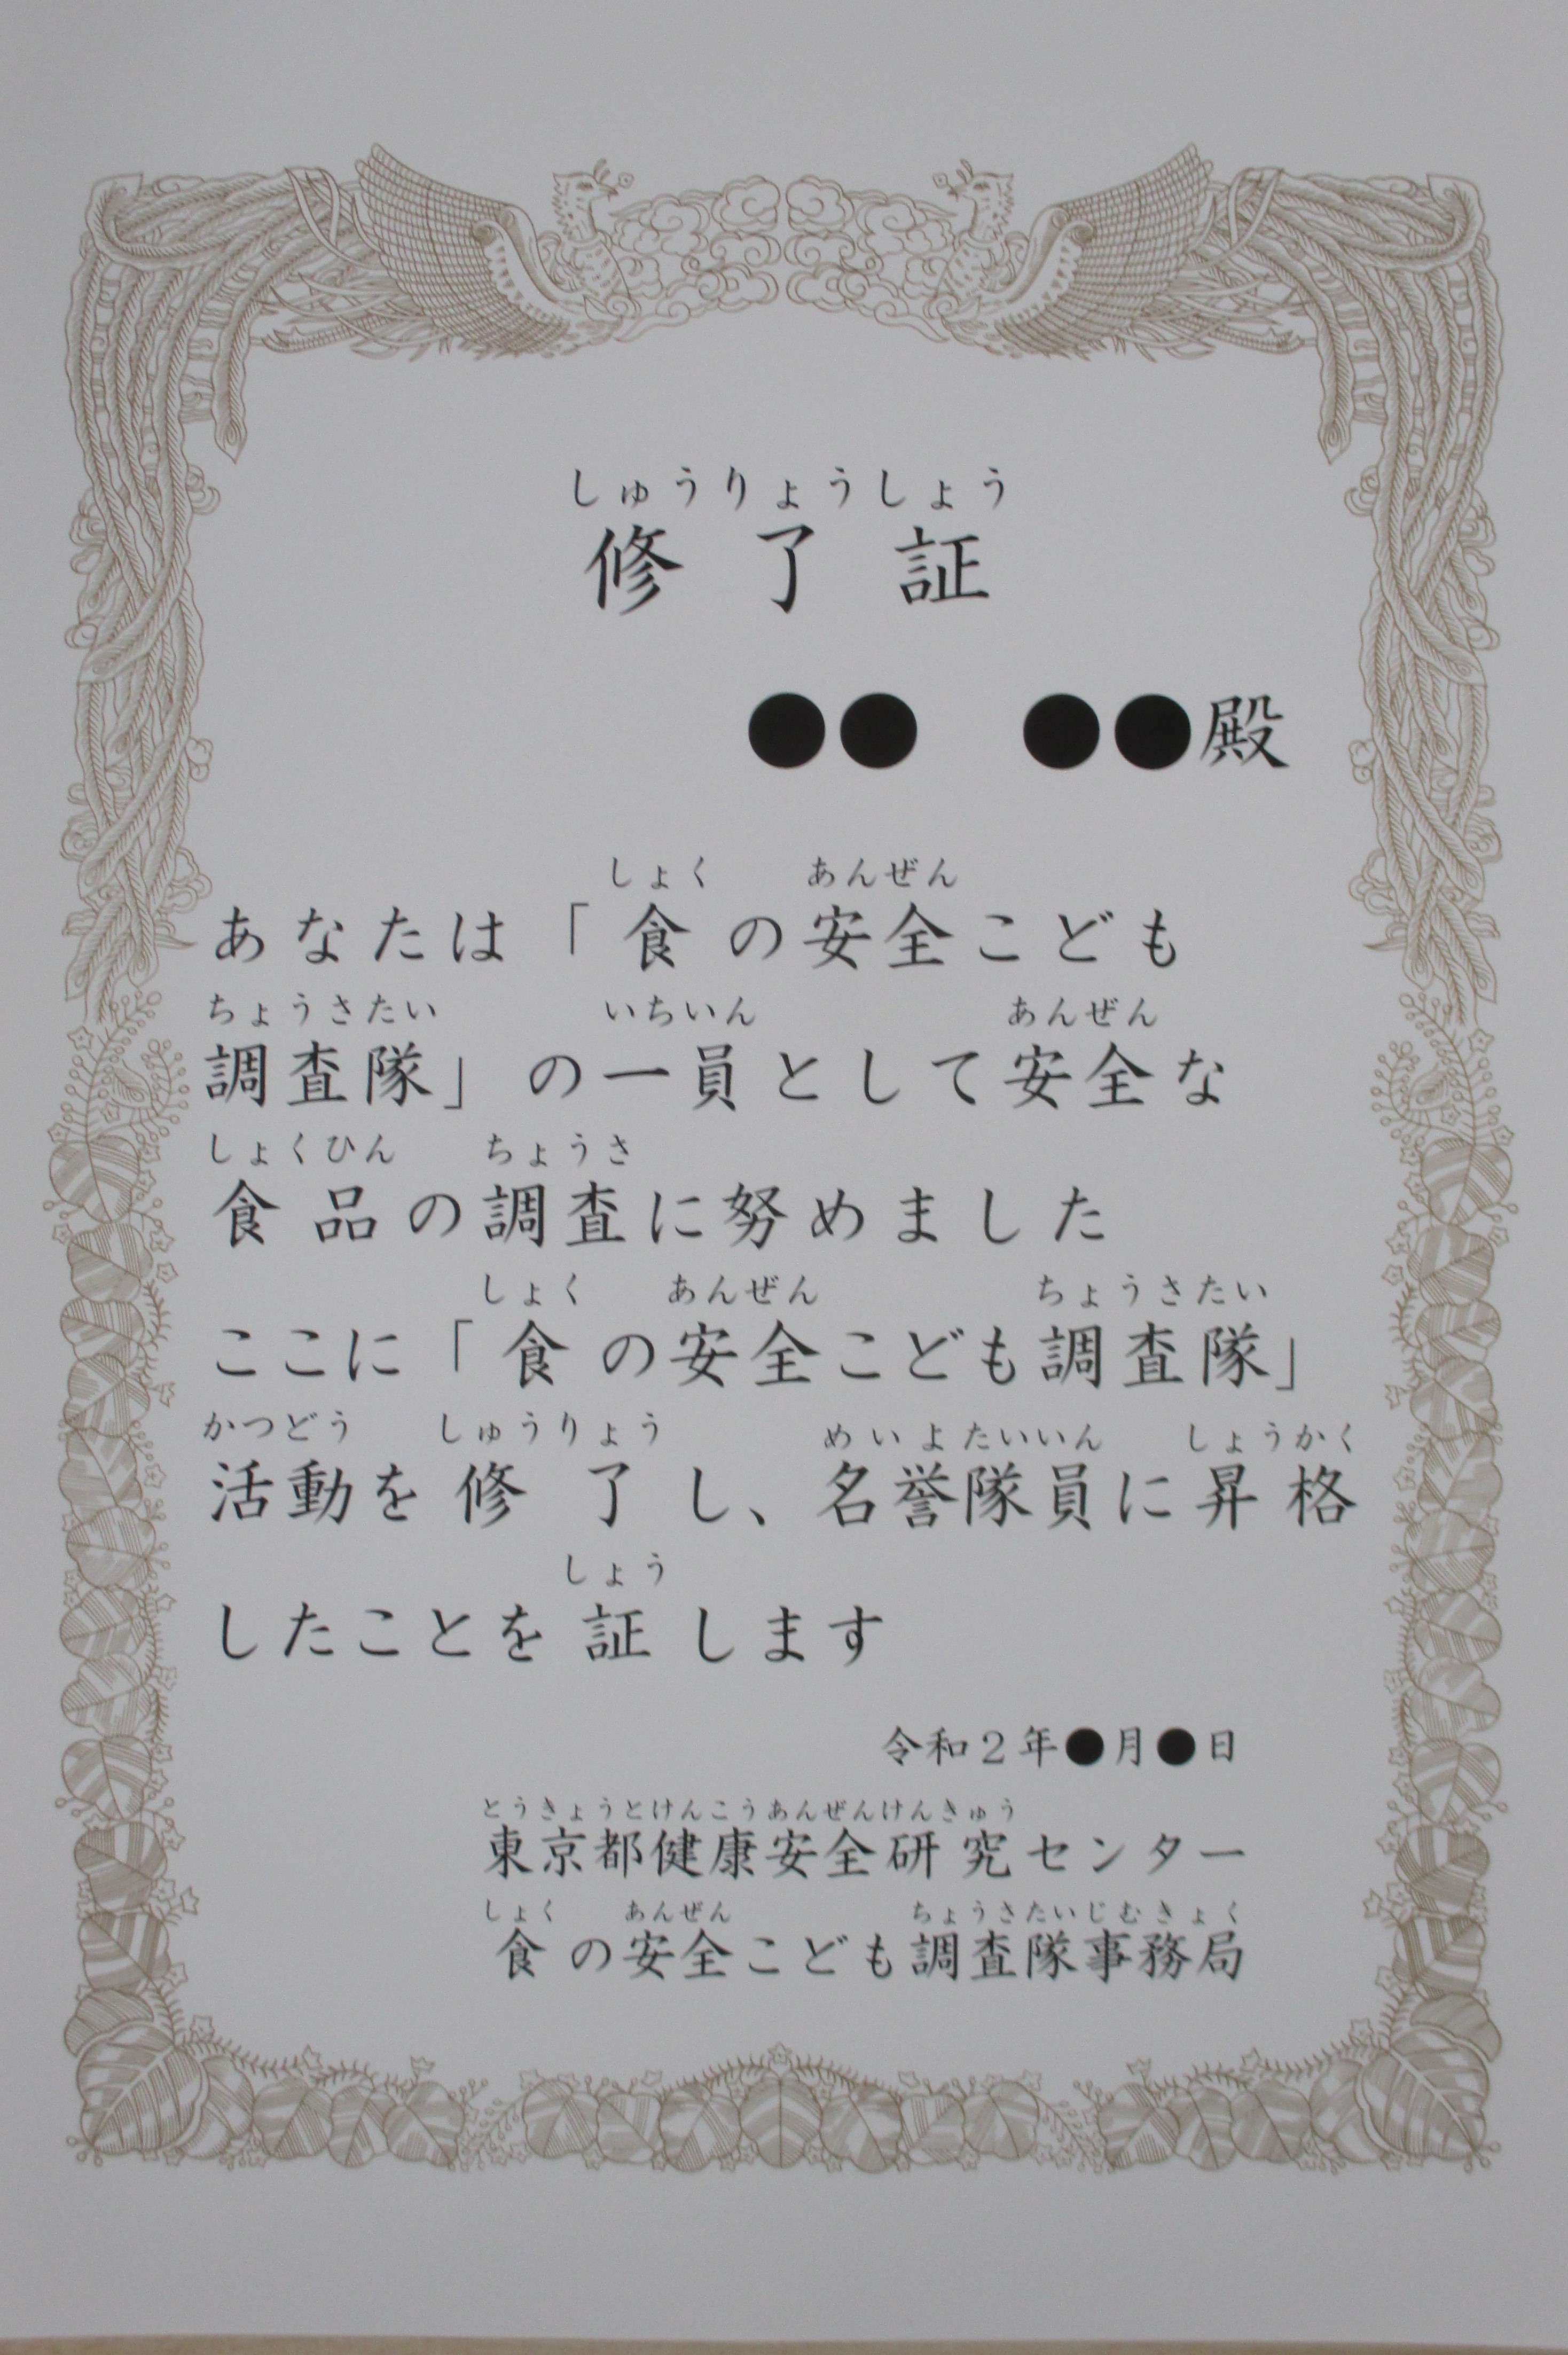 しゅうりょうしょう
修了証
●●　●●殿
しょく　あんぜん
あなたは「食の安全こども
ちょうさたい　いちいん　あんぜん
調査隊」の一員として安全な
しょくひん　ちょうさ
食品の調査に努めました
しょく　あんぜん　ちょうさたい
ここに「食の安全こども調査隊」
かつどう　しゅうりょう　めいよたいいん　しょうかく
活動を修了し、名誉隊員に昇格
しょう
したことを証します
令和２年●月●日
とうきょうとけんこうあんぜんけんきゅう
東京都健康安全研究センター
しょく　あんぜん　ちょうさたいじむきょく
食の安全こども調査隊事務局